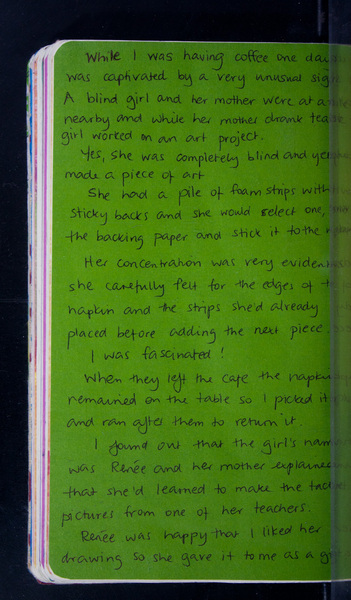 While I was having coffee one day
was captivated by a very unusual sight
A blind girl and her mother were at a
nearby and while her mother drank tea
girl worked on an art project.
Yes, she was completely blind and yet
made a piece of art
She had a pile of foam strips with
sticky backs and she would select one,
the backing paper and stick it to the
Her concentration was very evident
she carefully felt for the edges of the
napkin and the strips she'd already
placed before adding the next piece.
I was fascinated!
When they left the cafe the napkin
remained on the table so I picked it
and ran after them to return it.
I found out that the girl's name
was Renée and her mother explained
that she'd learned to make the
pictures from one of her teachers.
Renée was happy that I liked her
drawing so she gave it to me as a